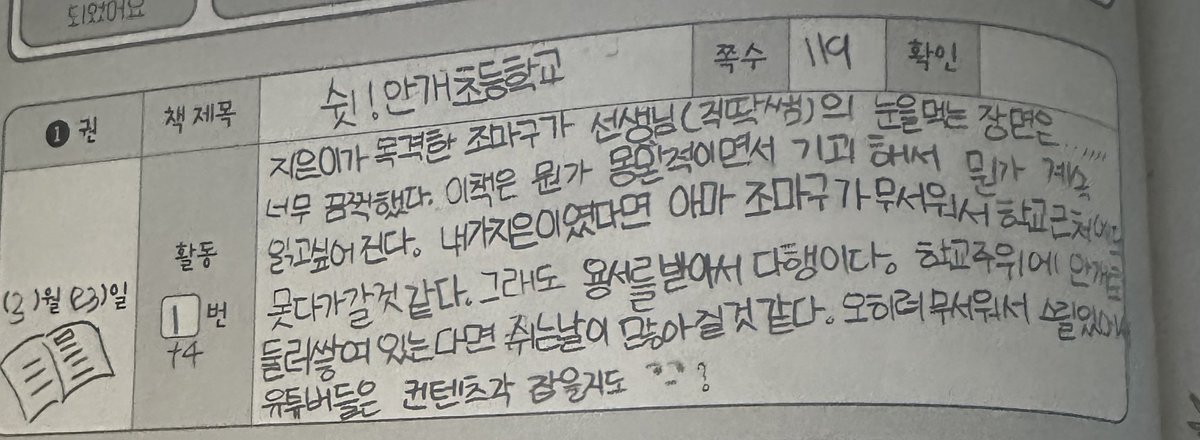 되었어요
❶ 권
책 제목
쉿! 안개초등학교
쪽수
119
확인
(3)월 (23)일
활동
1 번
+4
지은이가 목격한 조마구가 선생님(걱딱쌤)의 눈을먹는 장면은......
너무 끔찍했다. 이책은 뭔가 몽환적이면서 기괴해서 뭔가 계속
읽고싶어진다. 내가지은이였다면 아마 조마구가무서워서 학교근처에
못다가갈것 같다. 그래도 용서를받아서 다행이다. 학교주위에 안개로
둘러쌓여 있는다면 쉬는날이 많아질것 같다. 오히려무서워서 스릴있어
유튜버들은 컨텐츠각 잡을지도 ?